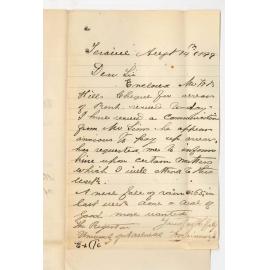 Augt 14th 1899
Dear Sir
Enclosed Mr
Hills Cheque for arrears
of Rent received today.
I have received a Communication
from Mr he appears
anxious to pay up arrears
has requested me to inform
him upon certain matters
which I will attend to this
week.
A nice fall of rain
last week done a deal of
Good more wanted
The Registrar